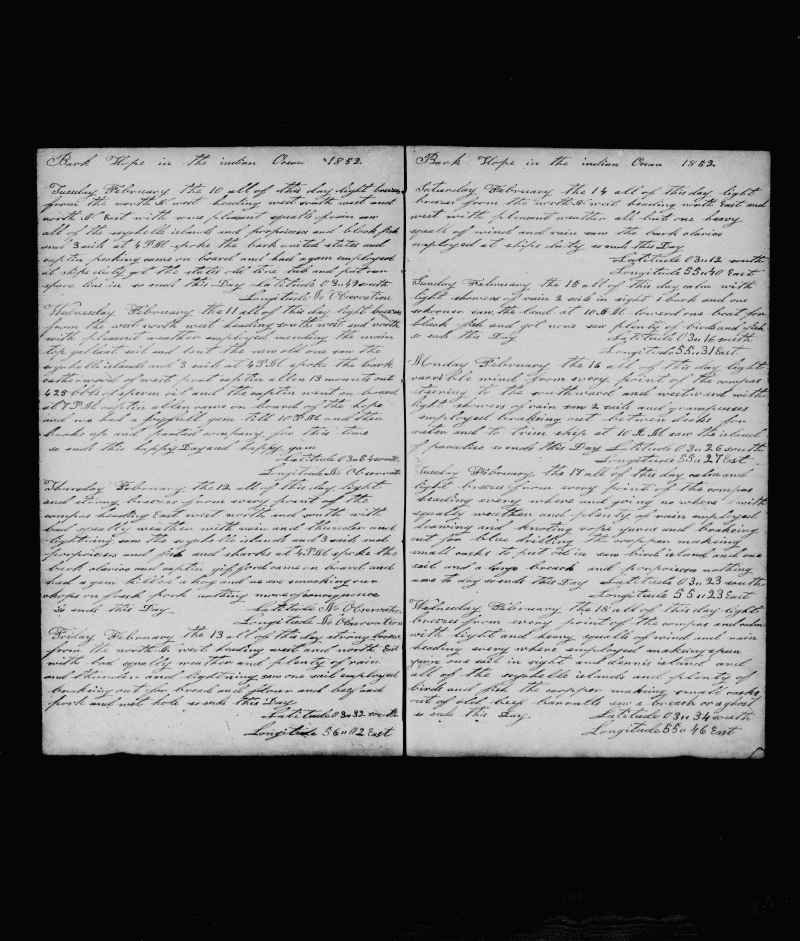 Bark Hope in the indian Ocean 1852
Tuesday Februrary the 10 all of this day light breezes
from the north N west heading west south west and
north N East with some pleasant squalls of rain saw
all of the seychelle islands and propoieses and black fish
and 3 sail at 4 P.M spoke the bark united states and
captin came on board and had a gam employed
at ships duty got the line tub and put our
spare line in so ends this Day Latitude 03 11 49 south
Longitude No Observation
Wednesday Februrary the 11 all of this day light breezes
from the west north west heading south west and north
with pleasent weather employed mending the main
top gallant sail and bent the new old one saw the
seychelle islands and 3 sail at 4 P.M spoke the bark
of west port captin allen 13 mounts out
425 bbls of sperm oil and the captin went on board
at 7 P.M captin allen came on board of the hope
and we had a joyfull gam till 10 P.M and then
broke up and parted company for this time
so ends this happy Day and happy gam
Latitude 03 11 54 south
Longitude No Observation
Thursday Februrary the 12 all of this day light
and strong breezes from every point of the
compas heading East west north and south with
bad squally weather with rain and thunder and
lightning saw the seychelle islands and 3 sail and
propoieses and fish and sharks at 4 P.M spoke the
bark alavice and captin gifford came on board and
had a gam killed a hog and we are smacking our
chops on fresh pork nothing more of consequence
so ends this Day Latitude No Observation
Longitude No Observation
Friday Februrary the 13 all of this day strong breezes
from the north N west heading west and north East
with bad squally weather and plenty of rain
and thunder and lightning saw one sail employed
breaking out for bread and flour and beef and
pork and so ends this Day
Latitude 03 11 32 south
Longitude 56 11 02 East
Bark Hope in the indian Ocean 1852
Saturday Februrary the 14 all of this day light
breezes from the north N west heading north East and
west with pleasant weather all but one heavy
squall of wind and rain saw the bark alavice
employed at ships duty so ends this Day
Latitude 03 11 12 south
Longitude 55 11 40 East
Sunday Februrary the 15 all of this day calm with
light showers of rain 2 sails in sight 1 bark and one
schooner saw the land at 10 A.M lowerd one boat for
black fish and got none saw plenty of birds and fish
so ends this Day Latitude 03 11 16 south
Longitude 55 11 31 East
Monday Februrary the 16 all of this day light
varible wind from every point of the compas
steering to the southward and westward with
light showers of rain saw 2 sails and grampuses
employed breaking out between decks for
water and to trim ship at 10 A.M saw the island
of paradise so ends this Day Latitude 03 11 26 south
Longitude 55 11 27 East
Tuesday Februrary the 17 all of this day calm and
light breezes from every point of the compas
heading every where and going no where with
squally weather and plenty of rain employed
drawing and knoting rope yarns and breaking
out for blue drilling the copper makeing
small casks to put oil in saw birds island and one
sail and a large breach and porpoieses nothing
more to day so ends this Day Latitude 03 11 23 south
Longitude 55 11 23 East
Wednesday Februrary the 18 all of this day light
breezes from every point of the compas and calm
with light and heavy squalls of wind and rain
heading every where employed makeing spun
yarn one sail in sight and dennis island and
all of the seychelle islands and plenty of
birds and fish the copper making small casks
out of old beef barralls saw a breach or a ghost
so ends this Day Latitude 03 11 34 south
Longitude 55 11 46 East